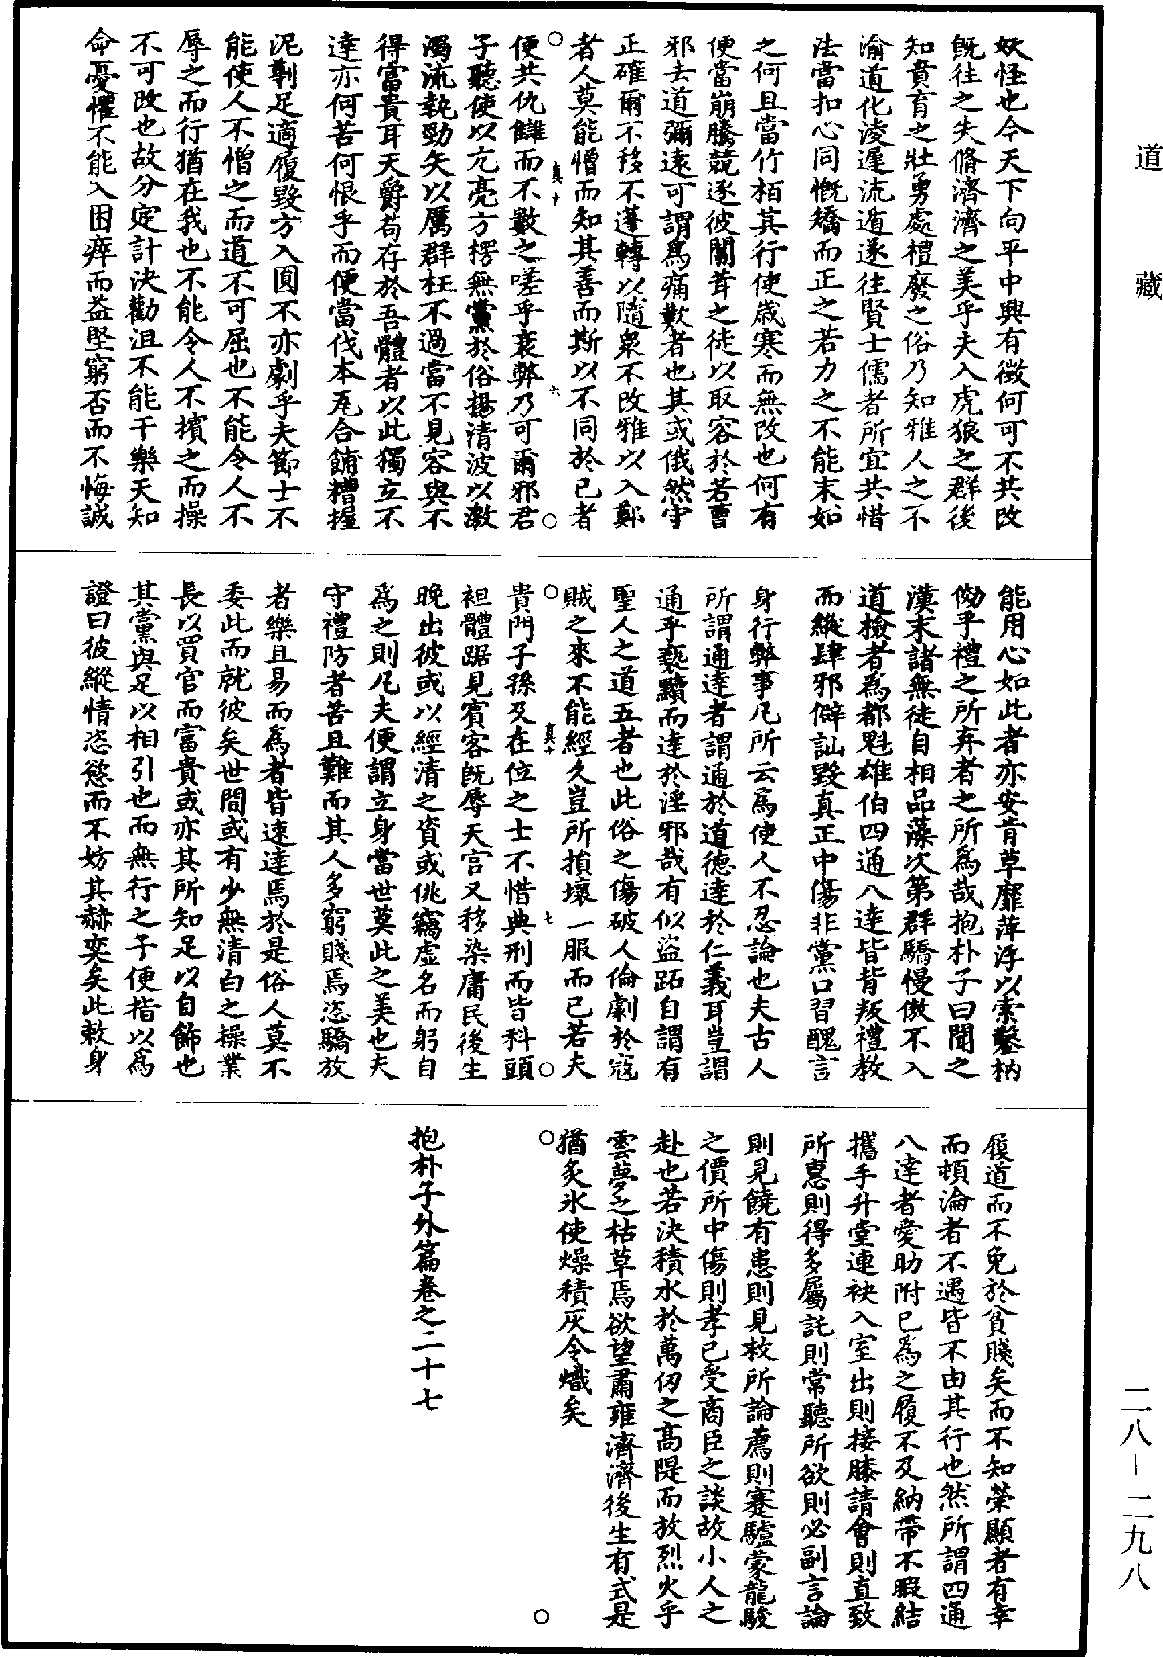 道藏
妖怪也今天下向平中興有徵何可不共改
既往之失脩濟濟之美乎夫入虎狼之群後
知賁育之壯勇處禮廢之俗乃知雅人之不
渝道化凌遲流遁遂往賢士儒者所宜共惜
法當扣心同慨矯而正之若力之不能末如
之何且當竹栢其行使歲寒而無改也何有
便當崩騰競逐彼闒茸之徒以取容於若曹
邪去道彌遠可謂為痛歎者也其或俄然守
正確爾不移不蓬轉以隨衆不改雅以入鄭
者人莫能憎而知其善而斯以不同於己者
便共仇讎而不數之嗟乎衰弊乃可爾邪君
真十
六
子聽使以亢亮方楞無黨於俗揚清波以激
濁流執勁矢以厲群枉不過當不見容與不
得富貴耳天爵苟存於吾體者以此獨立不
達亦何苦何恨乎而便當伐本瓦合餔糟握
泥剸足適履毀方入圓不亦劇乎夫節士不
能使人不憎之而道不可屈也不能令人不
辱之而行猶在我也不能令人不擯之而操
不可改也故分定計決勸沮不能干樂天知
命憂懼不能入困瘁而益堅窮否而不悔誠
能用心如此者亦安肯草靡萍浮以索鑿枘
傚乎禮之所弃者之所為哉抱朴子曰聞之
漢末諸無徒自相品藻次第群驕慢傲不入
道檢者為都魁雄伯四通八達皆背叛禮教
而縱肆邪僻訕毀真正中傷非黨口習醜言
身行弊事凡所云為使人不忍論也夫古人
所謂通達者謂通於道德達於仁義耳豈謂
通乎褻黷而達於淫邪哉有似盜跖自謂有
聖人之道五者也此俗之傷破人倫劇於寇
賊之來不能經久豈所損壞一服而已若夫
真十
七
貴門子孫及在位之士不惜典刑而皆科頭
袒體踞見賓客既辱天官又移染庸民後生
晚出彼或以經清之資或佻竊虛名而躬自
為之則凡夫便謂立身當世莫此之美也夫
守禮防者苦且難而其人多窮賤焉恣驕放
者樂且易而為者皆速達焉於是俗人莫不
委此而就彼矣世間或有少無清白之操業
長以買官而富貴或亦其所知足以自飾也
其黨與足以相引也而無行之子便指以為
證曰彼縱情恣慾而不妨其赫奕矣此敕身
履道而不免於貧賤矣而不知榮顯者有幸
而頓淪者不遇皆不由其行也然所謂四通
八達者愛助附己為之履不及納帶不暇結
攜手升堂連袂入室出則接膝請會則直致
所惠則得多屬託則常聽所欲則必副言論
則見饒有患則見救所論薦則蹇驢蒙龍駿
之價所中傷則孝己受商臣之談故小人之
赴也若決積水於萬仞之高隄而放烈火乎
雲夢之枯草焉欲望肅雍濟濟後生有式是
猶炙氷使燥積灰令熾矣
抱朴子外篇卷之二十七
二八－二九八